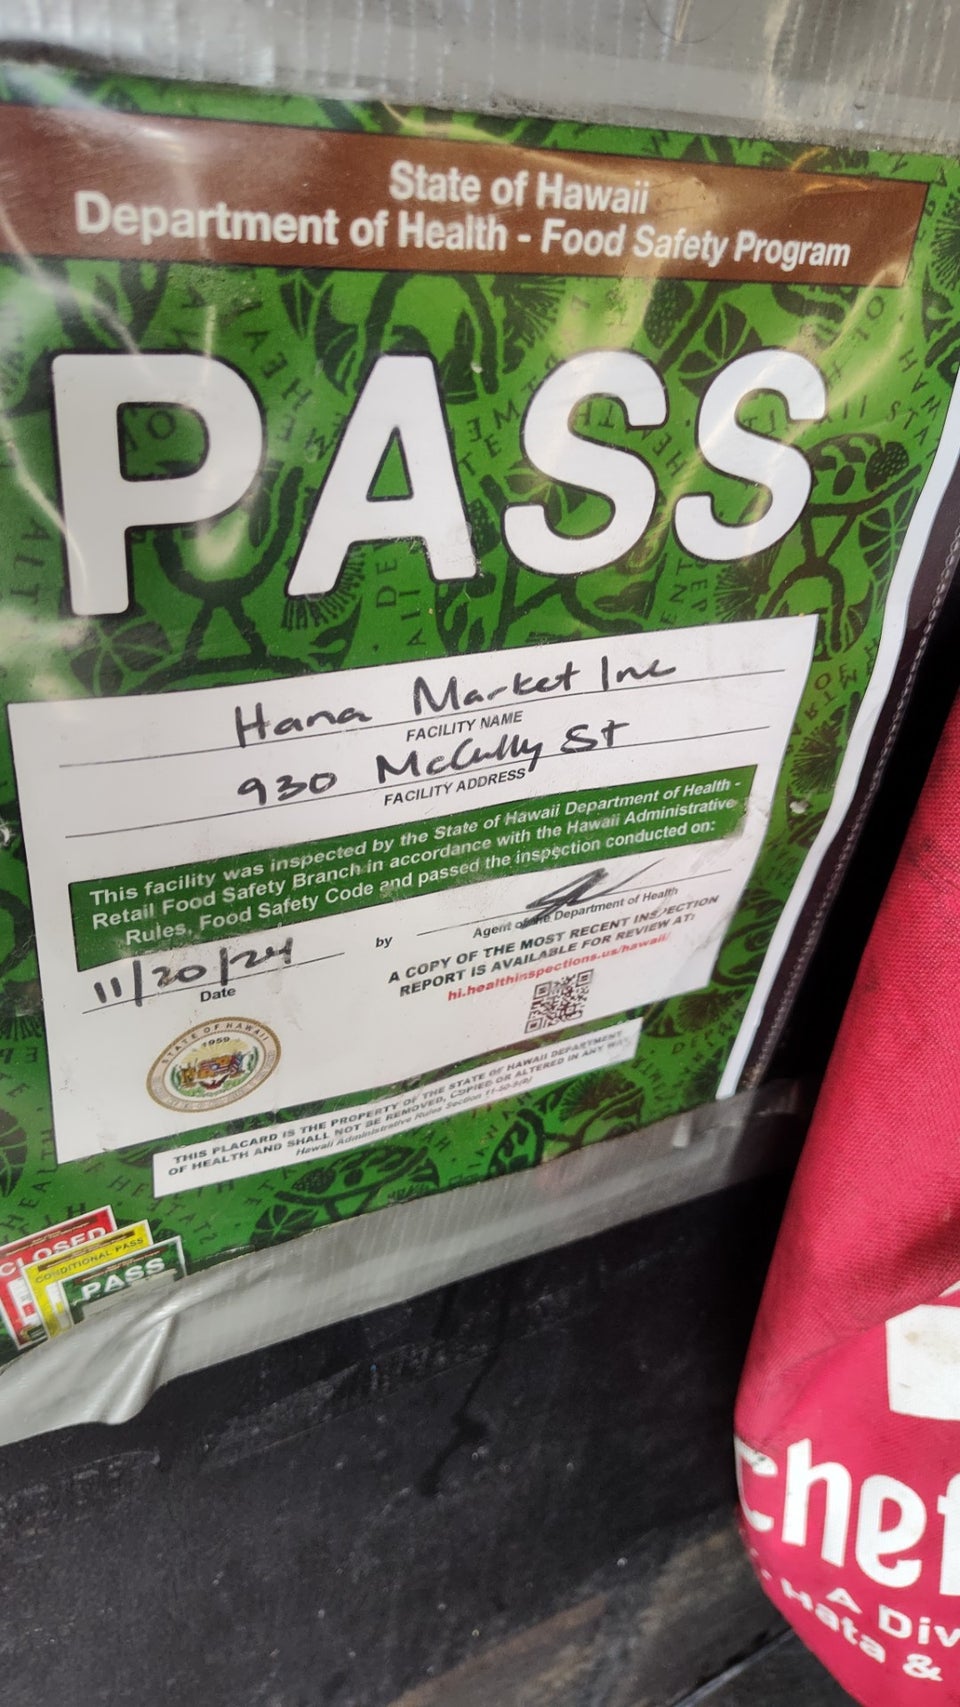 State of Hawaii
Department of Health - Food Safety Program
PASS
Hana Market Inc
FACILITY NAME
930 McCully St
FACILITY ADDRESS
This facility was inspected by the State of Hawaii Department of Health -
Retail Food Safety Branch in accordance with the Hawaii Administrative
Rules, Food Safety Code and passed the inspection conducted on:
11/20/24
Date
by
Agent of the Department of Health
A COPY OF THE MOST RECENT INSPECTION
REPORT IS AVAILABLE FOR REVIEW AT:
hi.healthinspections.us/hawaii/
STATE OF HAWAII
1959
THIS PLACARD IS THE PROPERTY OF THE STATE OF HAWAII DEPARTMENT
OF HEALTH AND SHALL NOT BE REMOVED, COPIED OR ALTERED IN ANY WAY.
Hawaii Administrative Rules Section 11-50-8(b)
CLOSED
CONDITIONAL PASS
PASS
Chef
A Div
Hata &